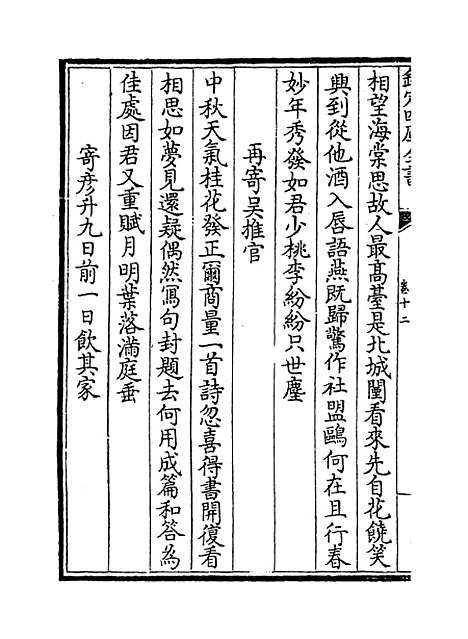 欽定四庫全書
卷十二
相望海棠思故人最髙臺是北城闉看來先自花饒笑
興到從他酒入唇語燕既歸驚作社盟鷗何在且行春
妙年秀發如君少桃李紛紛只世塵
再寄吴推官
中秋天氣桂花發正爾商量一首詩忽喜得書開復看
相思如夢見還疑偶然寫句封題去何用成篇和答為
佳處因君又重賦月明葉落滿庭垂
寄彦升九日前一日飲其家